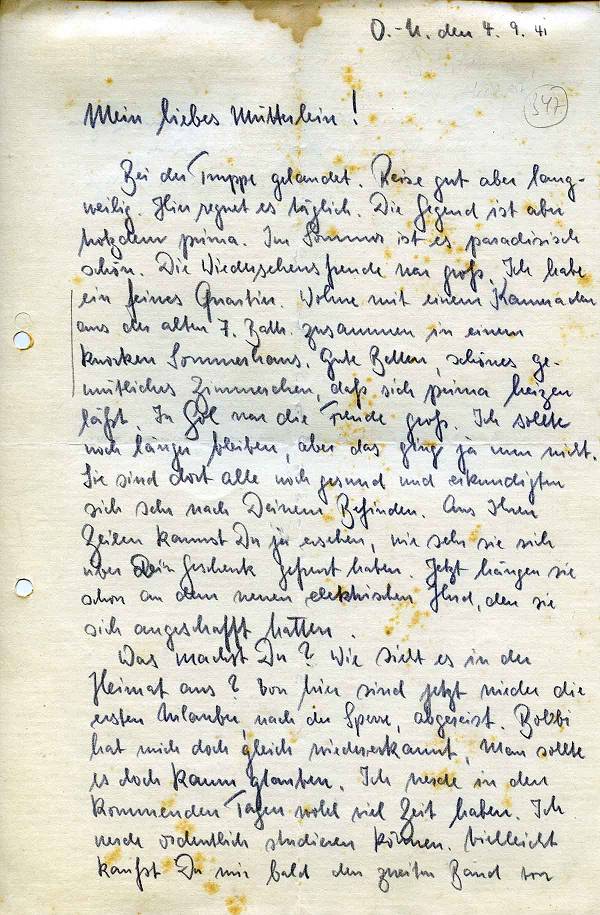 O.-U. den 4. 9. 41
347
Mein liebes Mütterlein!
Bei der Truppe gelandet. Reise gut aber lang-
weilig. Hier regnet es täglich. Die Gegend ist aber
trotzdem prima. Im Sommer ist es paradisisch
schön. Die Wiedersehensfreude war groß. Ich habe
ein feines Quartier. Wohne mit einem Kameraden
aus der alten 7. Battr. zusammen in einem
Sommerhaus. Gute Betten, schönes ge-
mütliches Zimmerchen, daß sich prima heizen
läßt. In Gol war die Freude groß. Ich sollte
noch länger bleiben, aber das ging ja nun nicht.
Sie sind dort alle noch gesund und erkundigten
sich sehr nach Deinem Befinden. Aus Ihren
Zeilen kannst Du ja ersehen, wie sehr sie sich
über Dein Geschenk gefreut haben. Jetzt hängen sie
schon an dem neuen elektrischen Herd, den sie
sich angeschafft hatten.
Was machst Du? Wie sieht es in der
Heimat aus? Von hier sind jetzt wieder die
ersten Urlauber, nach der Sperre, abgereist. Bobbi
hat mich doch gleich wiedererkannt, man sollte
es doch kaum glauben. Ich werde in den
kommenden Tagen wohl viel Zeit haben. Ich
werde ordentlich studieren können. Vielleicht
kaufst Du mir bald den zweiten Band von